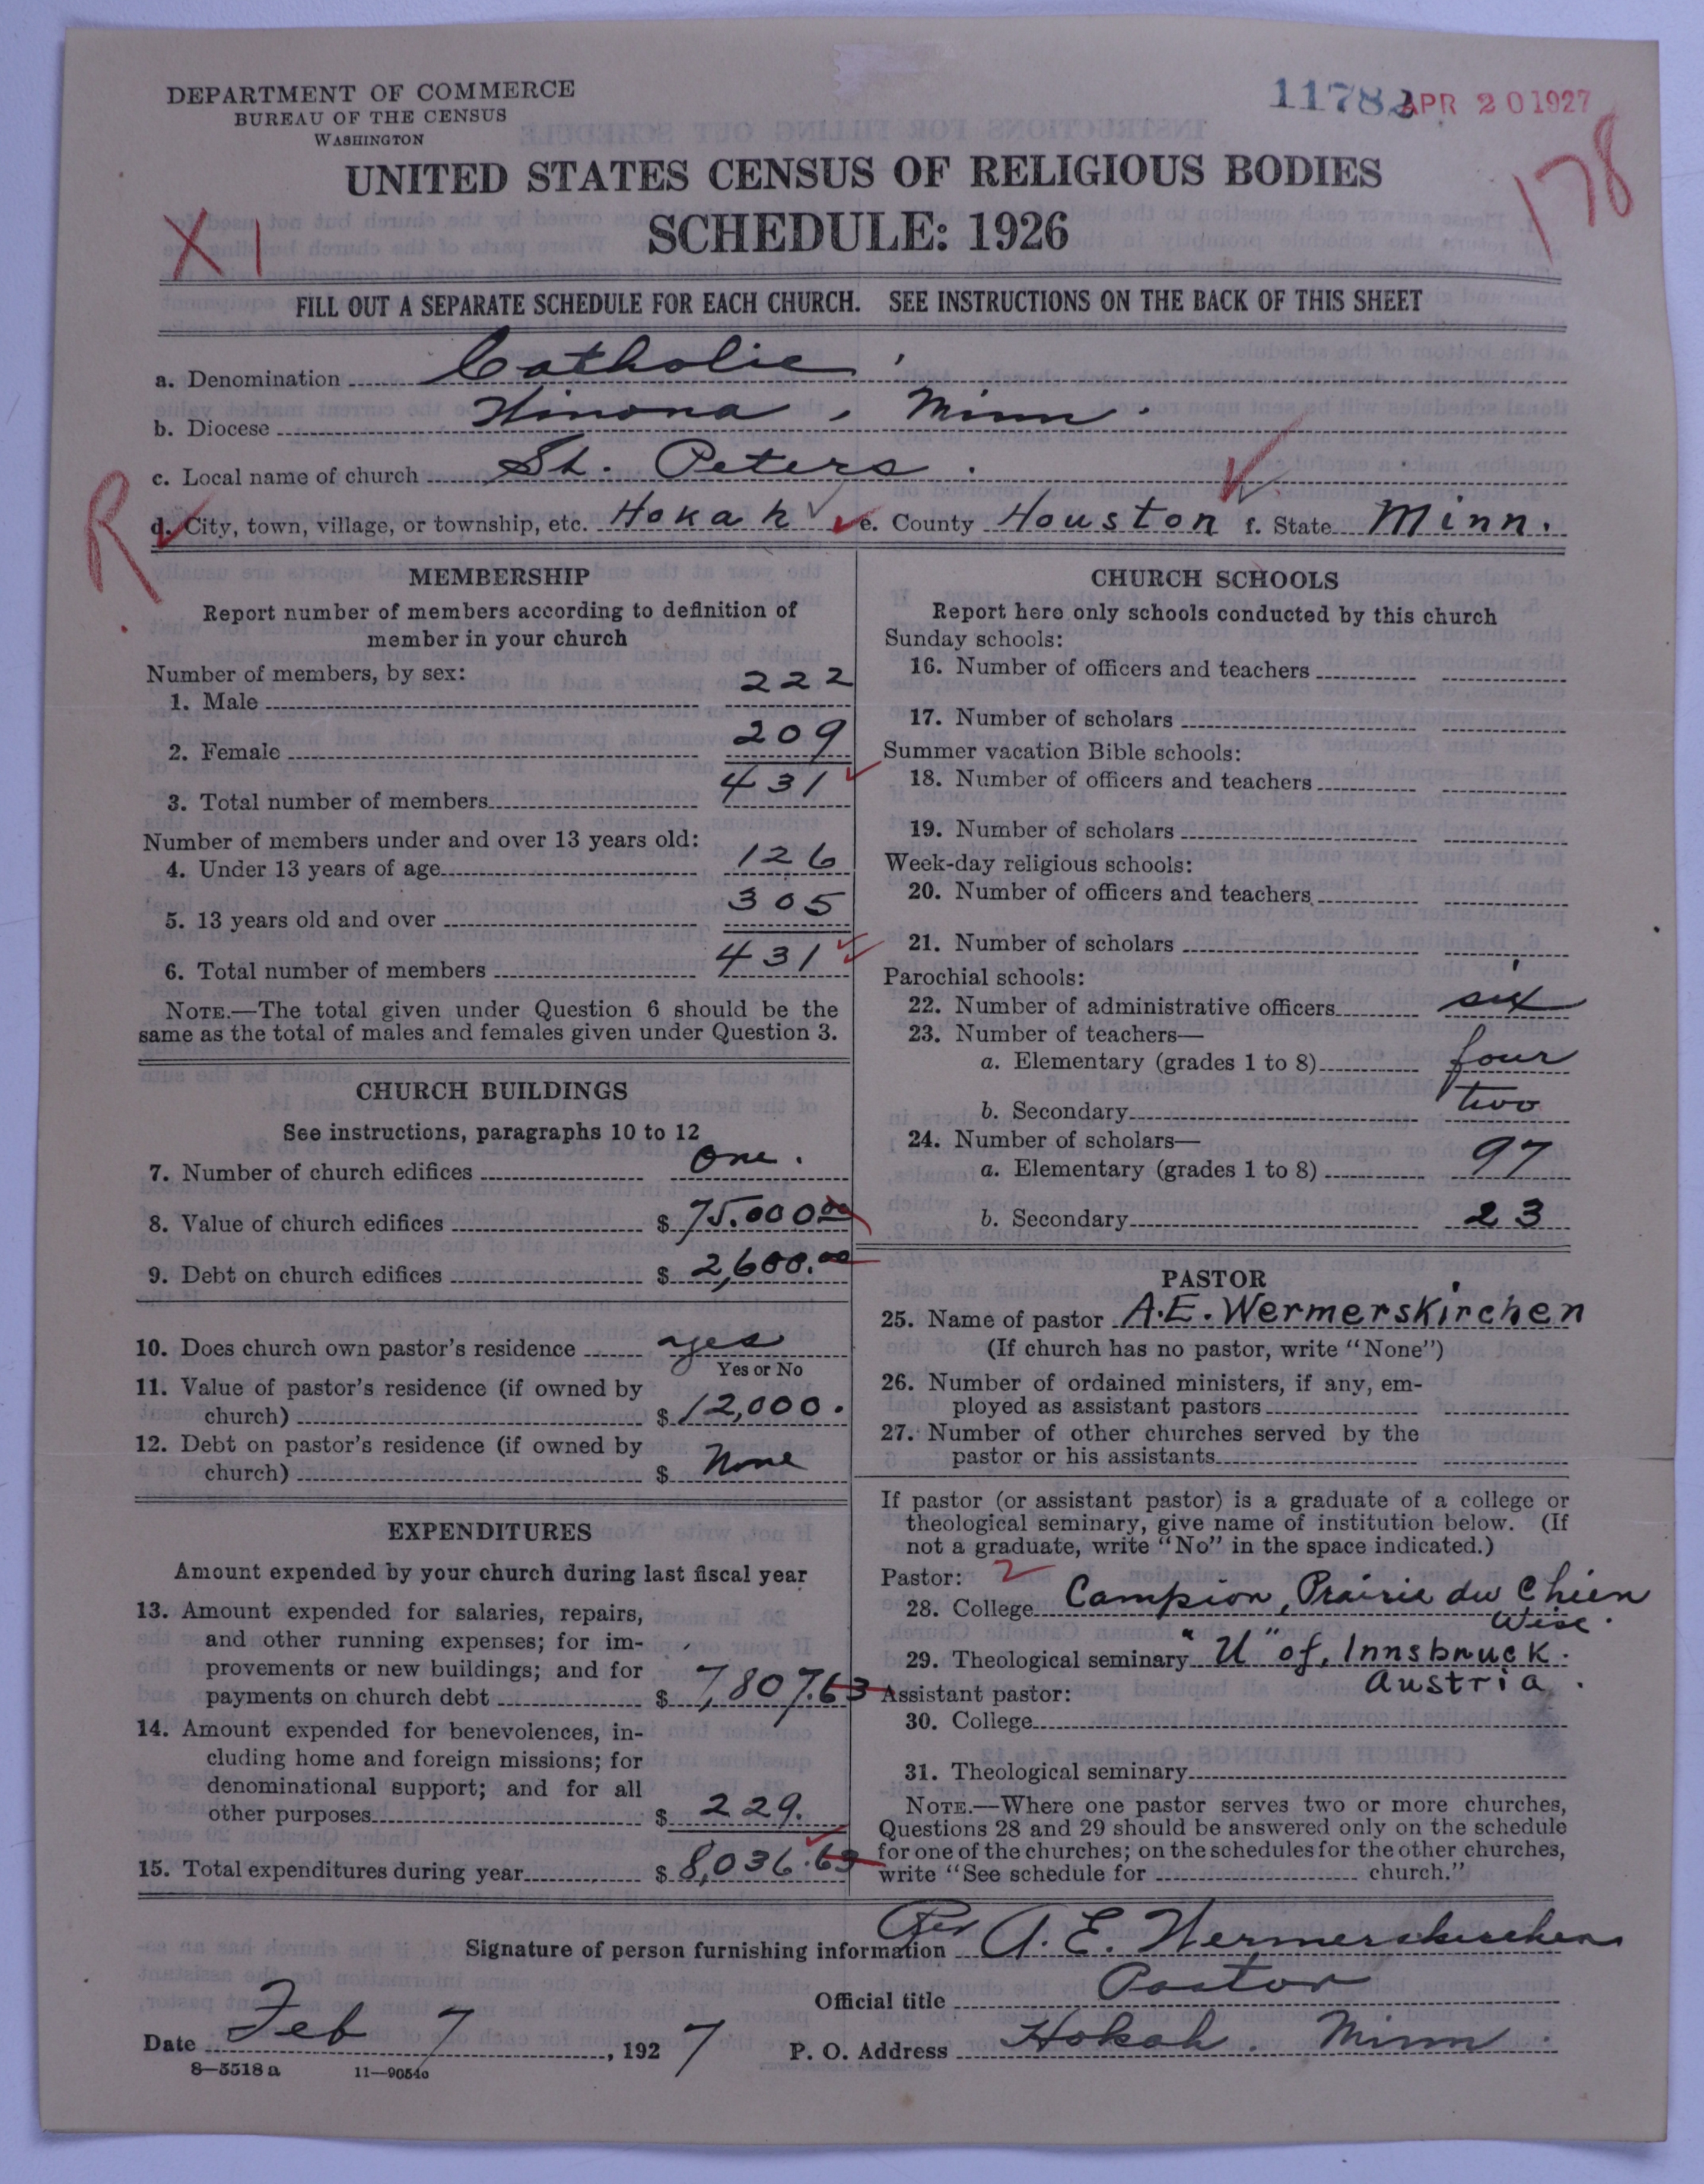 DEPARTMENT OF COMMERCE
BUREAU OF THE CENSUS
WASHINGTON
11782 APR 20 1927
UNITED STATES CENSUS OF RELIGIOUS BODIES
SCHEDULE: 1926
X I
178
FILL OUT A SEPARATE SCHEDULE FOR EACH CHURCH. SEE INSTRUCTIONS ON THE BACK OF THIS SHEET
a. Denomination Catholic
b. Diocese Winona, Minn.
c. Local name of church St. Peters.
R
d. City, town, village, or township, etc. Hokah e. County Houston f. State Minn.
MEMBERSHIP
Report number of members according to definition of
member in your church
Number of members, by sex:
1. Male 222
2. Female 209
3. Total number of members 431
Number of members under and over 13 years old:
4. Under 13 years of age 126
5. 13 years old and over 305
6. Total number of members 431
NOTE.—The total given under Question 6 should be the
same as the total of males and females given under Question 3.
CHURCH BUILDINGS
See instructions, paragraphs 10 to 12
7. Number of church edifices One.
8. Value of church edifices $ 75.000.00
9. Debt on church edifices $ 2,600.00
10. Does church own pastor's residence yes
Yes or No
11. Value of pastor's residence (if owned by
church) $ 12,000.
12. Debt on pastor's residence (if owned by
church) $ None
EXPENDITURES
Amount expended by your church during last fiscal year
13. Amount expended for salaries, repairs,
and other running expenses; for im-
provements or new buildings; and for
payments on church debt $ 7,807.63
14. Amount expended for benevolences, in-
cluding home and foreign missions; for
denominational support; and for all
other purposes $ 229.
15. Total expenditures during year $ 8,036.63
CHURCH SCHOOLS
Report here only schools conducted by this church
Sunday schools:
16. Number of officers and teachers
17. Number of scholars
Summer vacation Bible schools:
18. Number of officers and teachers
19. Number of scholars
Week-day religious schools:
20. Number of officers and teachers
21. Number of scholars
Parochial schools:
22. Number of administrative officers six
23. Number of teachers—
a. Elementary (grades 1 to 8) four
b. Secondary two
24. Number of scholars—
a. Elementary (grades 1 to 8) 97
b. Secondary 23
PASTOR
25. Name of pastor A.E. Wermerskirchen
(If church has no pastor, write "None")
26. Number of ordained ministers, if any, em-
ployed as assistant pastors
27. Number of other churches served by the
pastor or his assistants
If pastor (or assistant pastor) is a graduate of a college or
theological seminary, give name of institution below. (If
not a graduate, write "No" in the space indicated.)
Pastor: 2
28. College Campion, Prairie du Chien
Wisc.
29. Theological seminary "U" of, Innsbruck.
Austria.
Assistant pastor:
30. College
31. Theological seminary
NOTE.—Where one pastor serves two or more churches,
Questions 28 and 29 should be answered only on the schedule
for one of the churches; on the schedules for the other churches,
write "See schedule for church."
Signature of person furnishing information Rev A. E. Wermerskirchen
Official title Pastor
Date Feb 7, 1927 P. O. Address Hokah. Minn.
8—5518 a 11—9054a